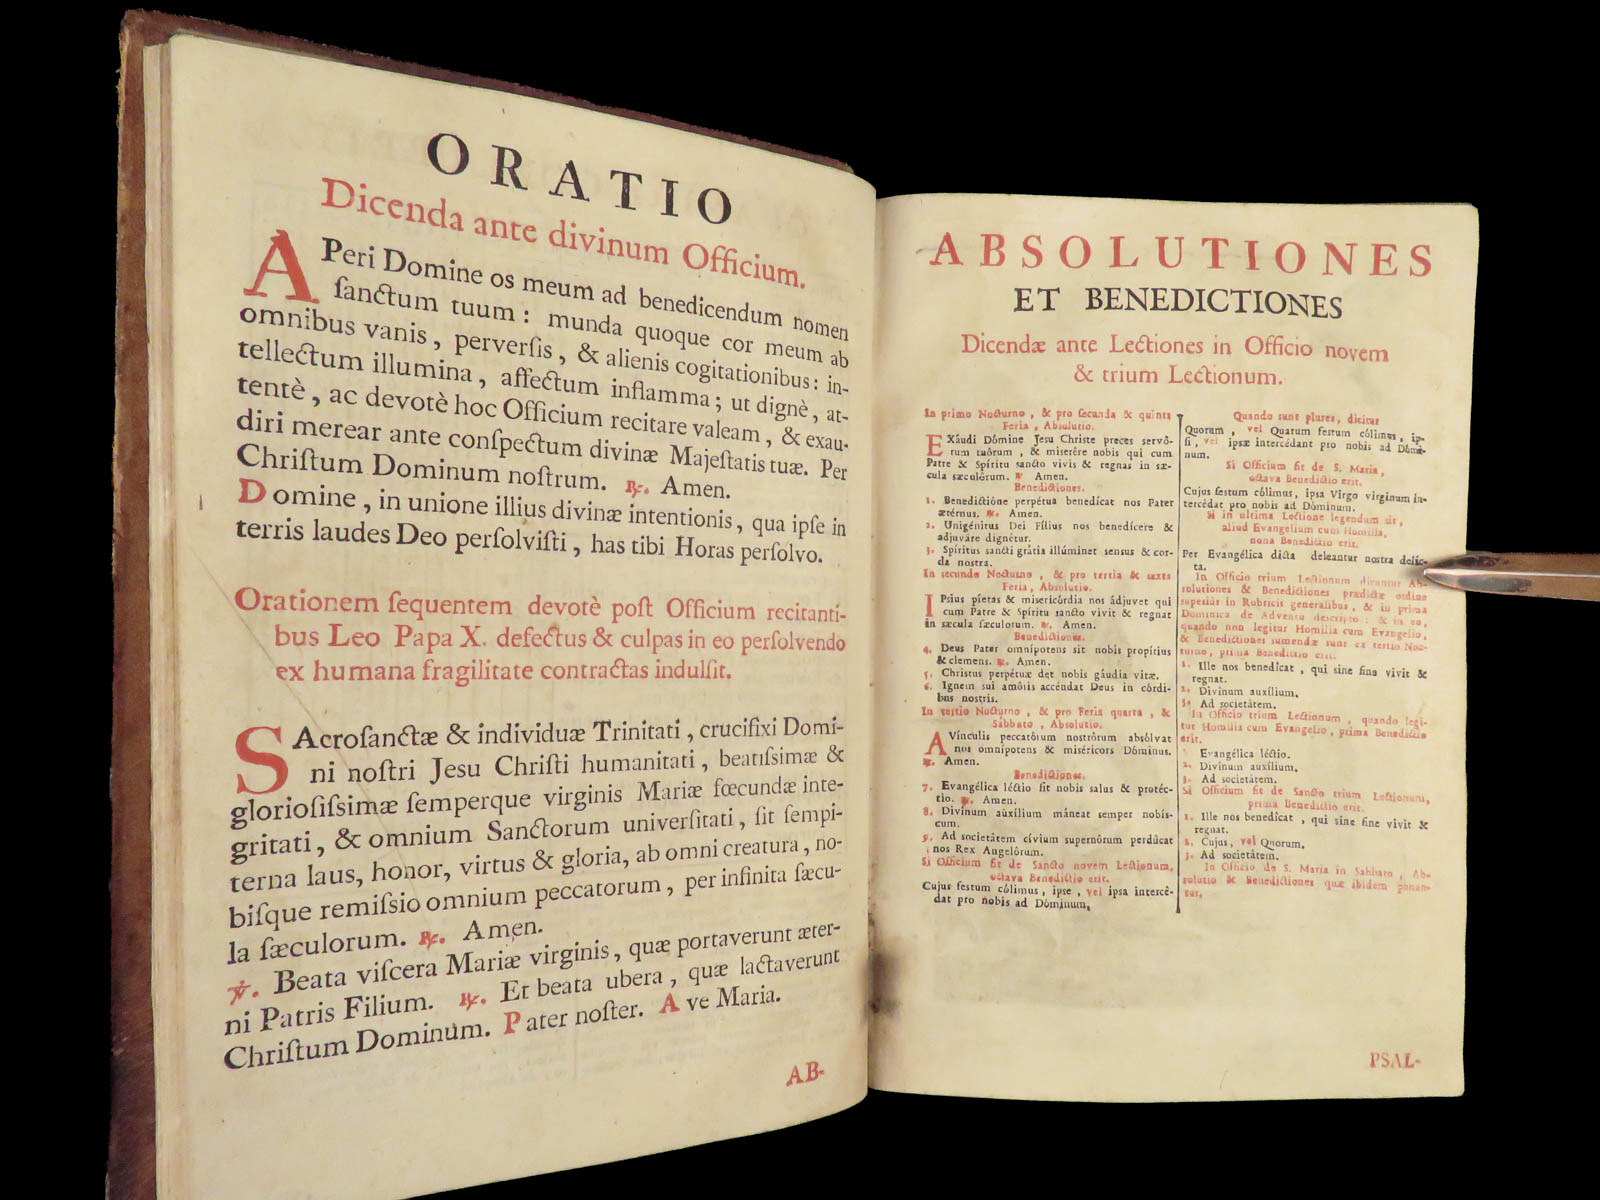 ORATIO
Dicenda ante divinum Officium.
APeri Domine os meum ad benedicendum nomen
ſanctum tuum : munda quoque cor meum ab
omnibus vanis , perverſis , & alienis cogitationibus : in-
tellectum illumina , affectum inflamma ; ut dignè , at-
tentè , ac devotè hoc Officium recitare valeam , & exau-
diri merear ante conſpectum divinæ Majeſtatis tuæ. Per
Chriſtum Dominum noſtrum. ℟. Amen.
Domine , in unione illius divinæ intentionis , qua ipſe in
terris laudes Deo perſolviſti , has tibi Horas perſolvo.
Orationem ſequentem devotè poſt Officium recitanti-
bus Leo Papa X. defectus & culpas in eo perſolvendo
ex humana fragilitate contractas indulſit.
SAcroſanctæ & individuæ Trinitati , crucifixi Domi-
ni noſtri Jesu Chriſti humanitati , beatiſsimæ &
glorioſiſsimæ ſemperque virginis Mariæ fœcundæ inte-
gritati , & omnium Sanctorum univerſitati , ſit ſempi-
terna laus, honor, virtus & gloria, ab omni creatura , no-
biſque remiſsio omnium peccatorum , per infinita ſæcu-
la ſæculorum. ℟. Amen.
℣. Beata viſcera Mariæ virginis , quæ portaverunt æter-
ni Patris Filium. ℟. Et beata ubera , quæ lactaverunt
Chriſtum Dominum. Pater noſter. Ave Maria.
AB-
ABSOLUTIONES
ET BENEDICTIONES
Dicendæ ante Lectiones in Officio novem
& trium Lectionum.
In primo Nocturno , & pro ſecunda & quinta
Feria , Abſolutio.
EXáudi Dómine Jesu Christe preces servó-
rum tuórum , & miserére nobis qui cum
Patre & Spíritu sancto vivis & regnas in sæ-
cula sæculórum. ℟ Amen.
Benedictiones.
1. Benedictióne perpétua benedícat nos Pater
ætérnus. ℟. Amen.
2. Unigénitus Dei Fílius nos benedícere &
adjuváre dignétur.
3. Spíritus sancti grátia illúminet sensus & cor-
da nostra.
In secundo Nocturno , & pro tertia & sexta
Feria , Absolutio.
IPsíus píetas & misericórdia nos ádjuvet qui
cum Patre & Spíritu sancto vivit & regnat
in sæcula sæculórum. ℟. Amen.
Benedictiones.
4. Deus Pater omnípotens sit nobis propítius
& clemens. ℟. Amen.
5. Christus perpétuæ det nobis gáudia vitæ.
6. Ignem sui amóris accéndat Deus in córdi-
bus nostris.
In tertio Nocturno , & pro Feria quarta , &
Sábbato , Absolutio.
AVínculis peccatórum nostrórum absólvat
nos omnípotens & miséricors Dóminus.
℟. Amen.
Benedictiones.
7. Evangélica léctio sit nobis salus & protéc-
tio. ℟. Amen.
8. Divínum auxílium máneat semper nobís-
cum.
9. Ad societátem cívium supernórum perdúcat
nos Rex Angelórum.
Si Officium fit de Sancto novem Lectionum,
octava Benedictio erit.
Cujus festum cólimus , ipse , vel ipsa intercé-
dat pro nobis ad Dóminum.
Quando sunt plures, dicitur
Quorum , vel Quarum festum cólimus , ip-
si , vel ipsæ intercédant pro nobis ad Dómi-
num.
Si Officium fit de S. Maria,
octava Benedictio erit.
Cujus festum cólimus, ipsa Virgo vírginum in-
tercédat pro nobis ad Dóminum.
Si in ultima Lectione legendum sit,
aliud Evangelium cum Homilia,
nona Benedictio erit.
Per Evangélica dicta deleántur nostra delíc-
ta.
In Officio trium Lectionum dicuntur Ab-
solutiones & Benedictiones prædictæ ordine
superiùs in Rubricis generalibus , & in prima
Dominica de Adventu descripto : & in eo,
quando non legitur Homilia cum Evangelio,
& Benedictiones sumendæ sunt ex tertio Noc-
turno , prima Benedictio erit.
1. Ille nos benedícat , qui sine fine vivit &
regnat.
2. Divínum auxílium.
3. Ad societátem.
In Officio trium Lectionum , quando legi-
tur Homilia cum Evangelio , prima Benedictio
erit.
1 Evangélica léctio.
2. Divínum auxílium.
3. Ad societátem.
Si Officium fit de Sancto trium Lectionum,
prima Benedictio erit.
1. Ille nos benedícat , qui sine fine vivit &
regnat.
2. Cujus, vel Quorum.
3. Ad societátem.
In Officio de S. Maria in Sabbato , Ab-
solutio & Benedictiones quæ ibidem ponun-
tur.
PSAL-